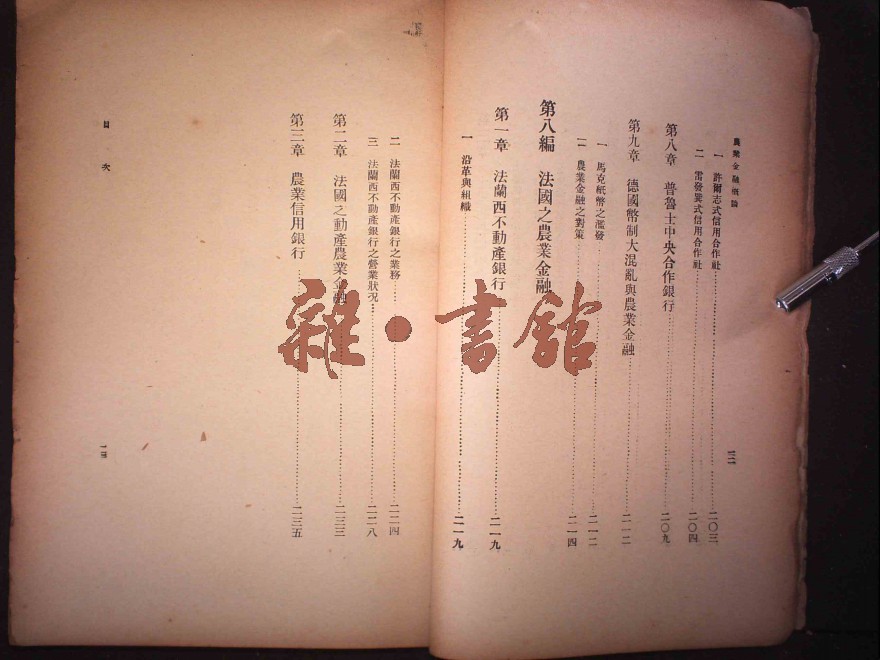 農業金融概論
一 許爾志式信用合作社 二〇三
二 雷發巽式信用合作社 二〇四
第八章 普魯士中央合作銀行 二〇九
第九章 德國幣制大混亂與農業金融 二一二
一 馬克紙幣之濫發 二一二
二 農業金融之對策 二一四
第八編 法國之農業金融
第一章 法蘭西不動產銀行 二一九
一 沿革與組織 二一九
二 法蘭西不動產銀行之業務 二二四
三 法蘭西不動產銀行之營業狀況 二二八
第二章 法國之動產農業金融 二三三
第三章 農業信用銀行 二三五
目次
雜·書館